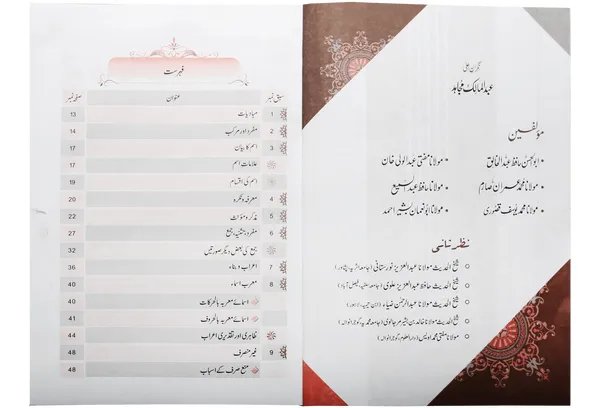 نگران اعلیٰ
عبدالمالک مجاہد
مؤلفین
ابوالحسن حافظ عبدالخالق
مولانا مفتی عبدالولی خان
مولانا محمد عمران صارم
مولانا حافظ عبدالسمیع
مولانا محمد یوسف قصوری
مولانا ابو نعمان بشیر احمد
نظر ثانی
شیخ الحدیث مولانا عبدالعزیز نورستانی (جامعہ اثریہ، پشاور)
شیخ الحدیث حافظ عبدالعزیز علوی (جامعہ سلفیہ، فیصل آباد)
شیخ الحدیث مولانا عبدالرحمٰن ضیاء (ابن تیمیہ، لاہور)
شیخ الحدیث مولانا خالد بن بشیر مرجالوی (جامعہ محمدیہ، گوجرانوالہ)
مولانا مفتی محمد اویس (دارالعلوم، گوجرانوالہ)
فہرست
سبق نمبر عنوان صفحہ نمبر
1 مبادیات 13
2 مفرد اور مرکب 14
3 اسم کا بیان 17
علامات اسم 17
اسم کی اقسام 19
4 معرفہ و نکرہ 20
5 مذکر و مؤنث 22
6 مفرد، تثنیہ، جمع 27
جمع کی بعض دیگر صورتیں 32
7 اعراب و بناء 36
8 معرب اسماء 40
اسمائے معربہ بالحرکات 40
اسمائے معربہ بالحروف 41
ظاہری اور تقدیری اعراب 44
9 غیر منصرف 48
منع صرف کے اسباب 48